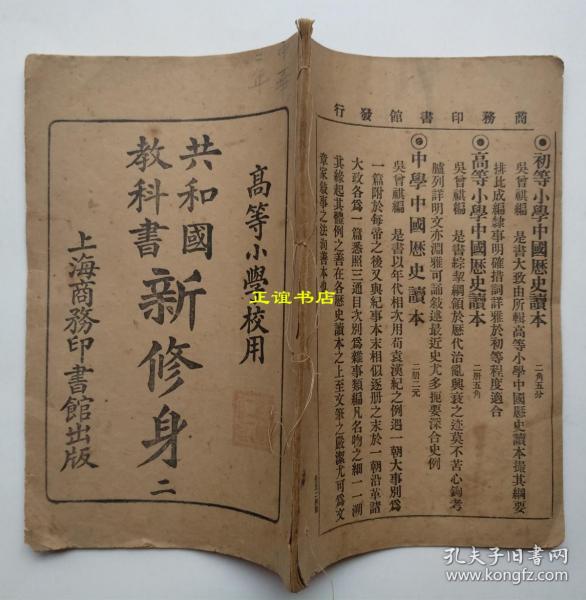 高等小學校用
共和國
教科書
新修身
二
上海商務印書館出版
商務印書館發行
初等小學中國歷史讀本
二角五分
吳曾祺編 是書大致由所輯高等小學中國歷史讀本撮其綱要
排比成編隸事明確措詞詳雅於初等程度適合
高等小學中國歷史讀本
二册五角
吳曾祺編 是書綜挈綱領於歷代治亂興衰之迹莫不苦心鉤考
臚列詳明文亦淵雅可誦敘述最近史尤多扼要深合史例
中學中國歷史讀本
二册二元
吳曾祺編 是書以年代相次用荀袁漢紀之例遇一朝大事別爲
一篇附於每帝之後又與紀事本末相似逐册之末於一朝沿革諸
大政各爲一篇悉照三通目次別爲雜事類編凡名物之細一一溯
其緣起其體例之善在各歷史讀本之上至文筆之嚴潔尤可爲文
章家敘事之法洵善本
正谊书店
孔夫子旧书网
www.kongfz.com